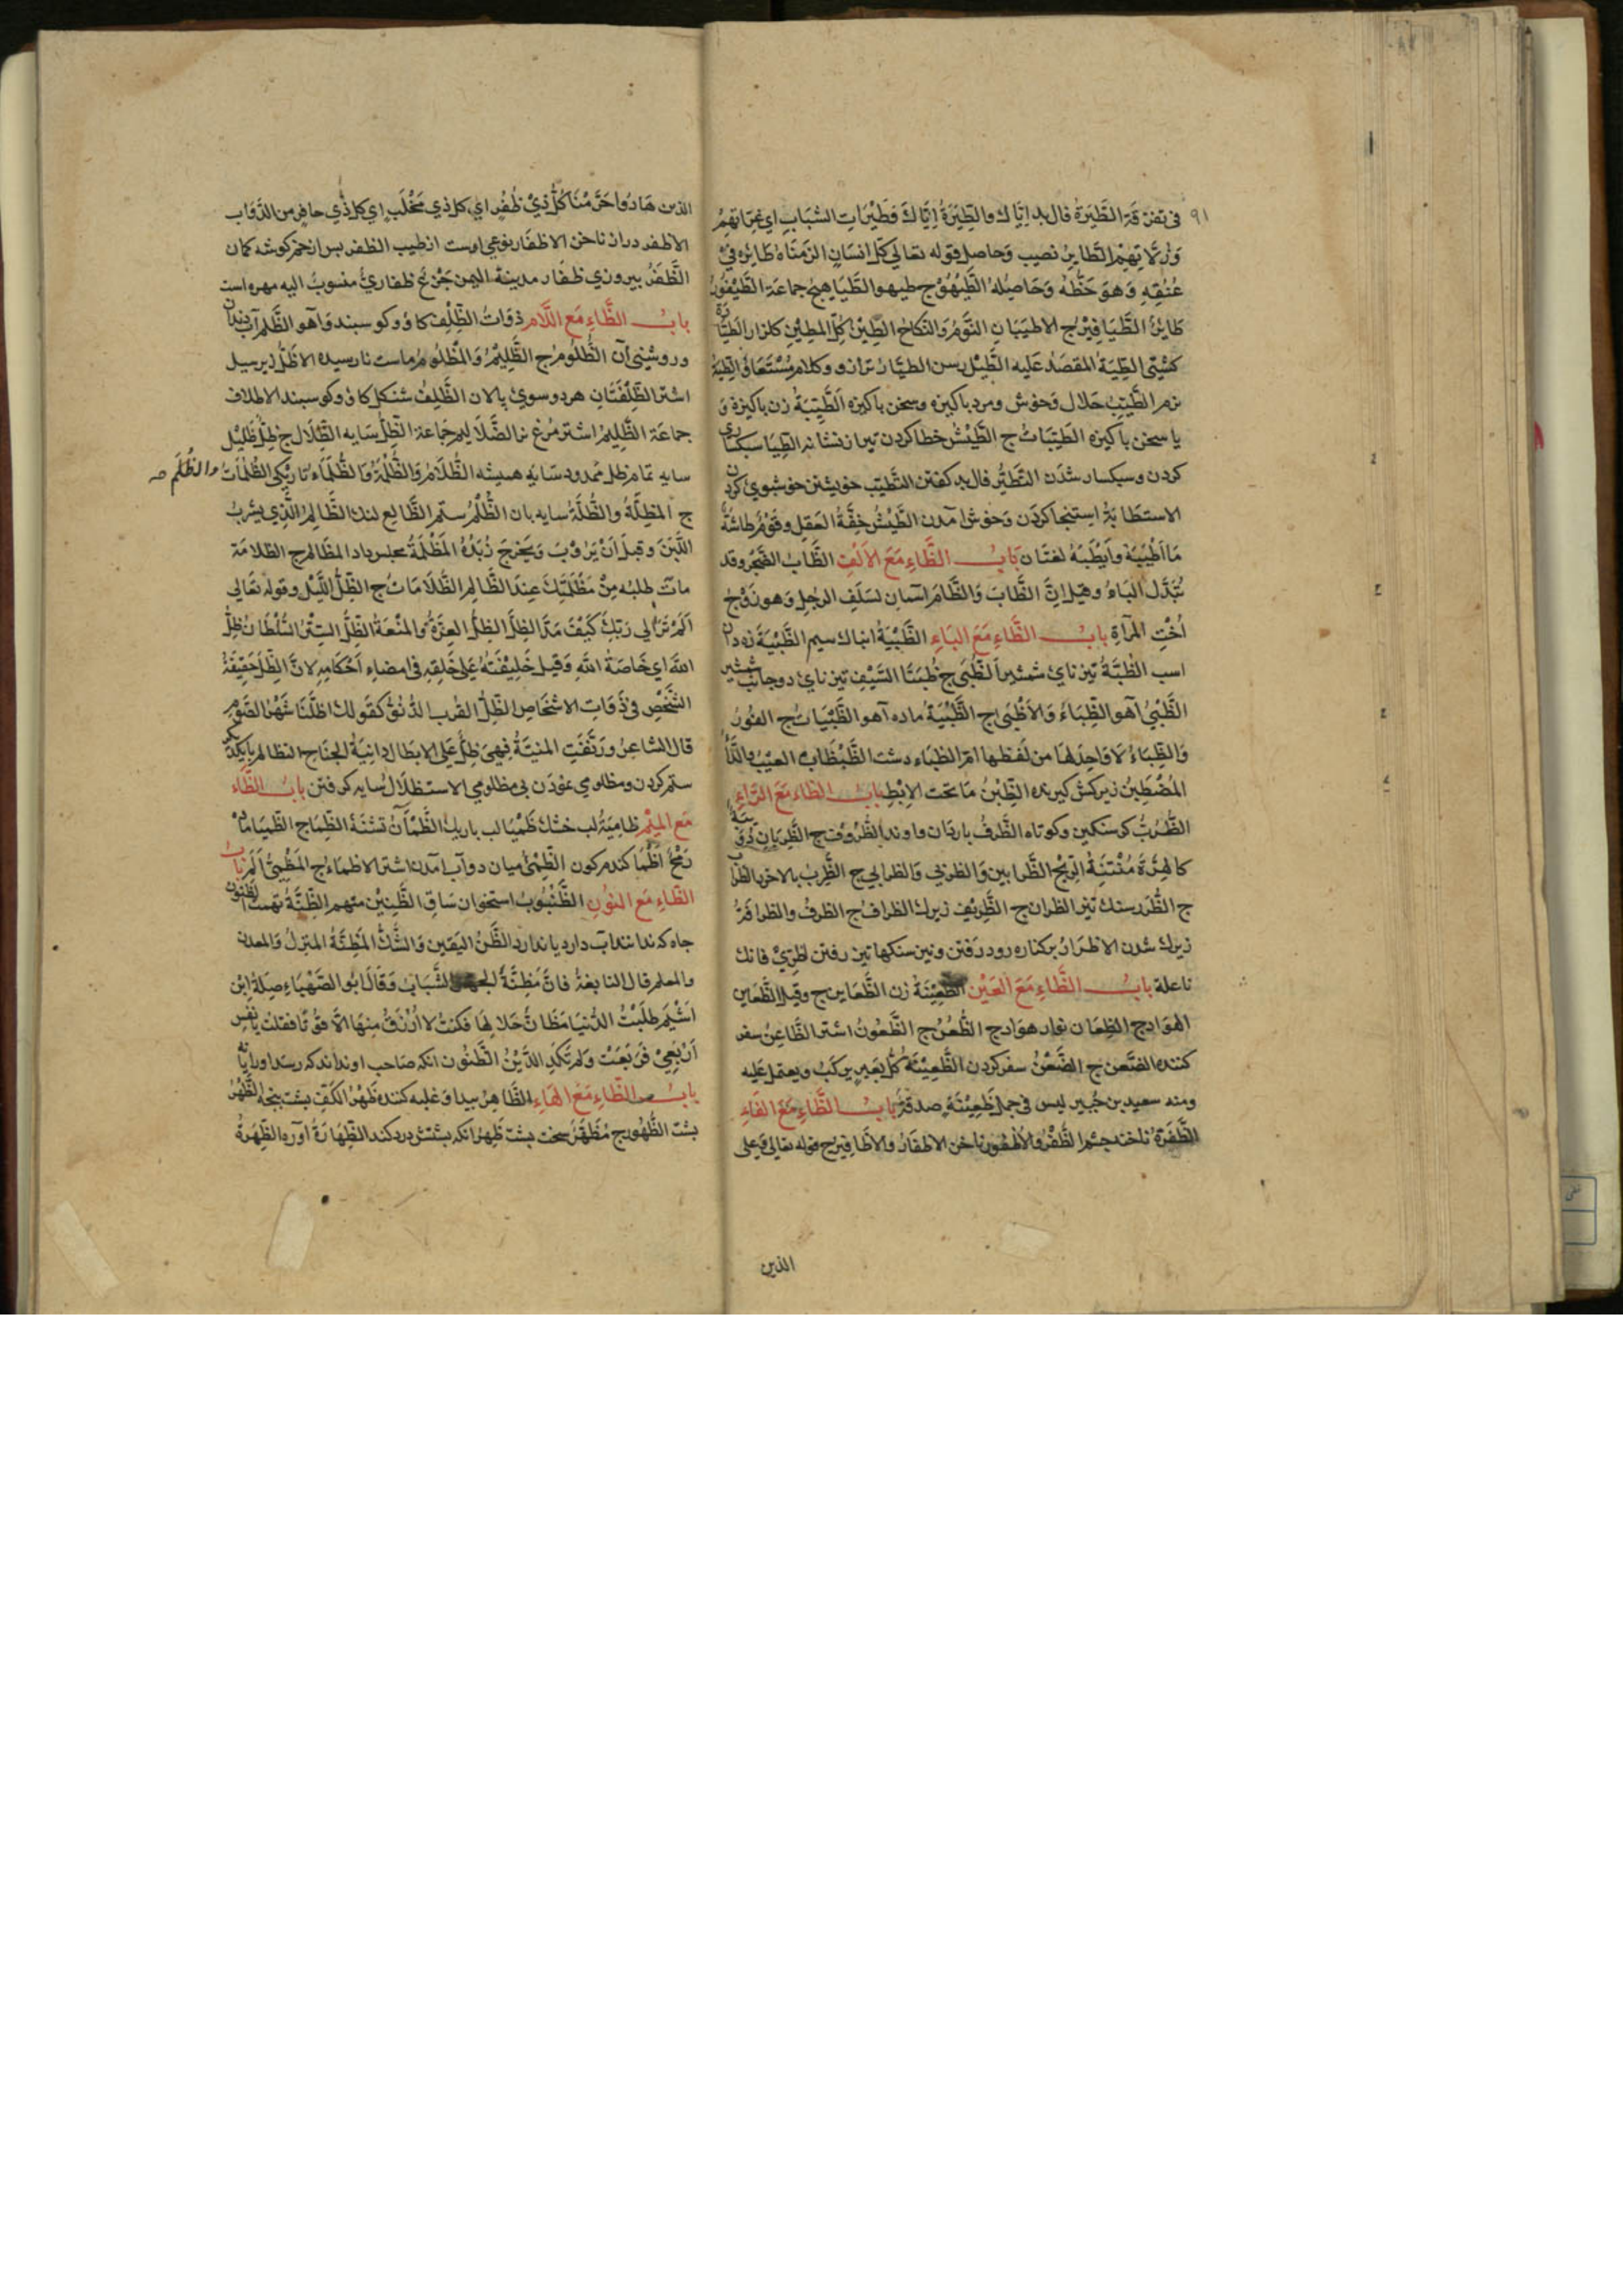 ٩١
في تفرقة الطَّيَرَةُ فال بد اِيَّاك والطِّيَرَةُ اِيَّاكَ وَطَيْرَاتِ الشَبَابِ اي غِرَّاتهِمُ
وَزَلَّاتِهِمْ الطَّايِرُ نصيب وَحاصل قوله تعالى كلّ انسَانٍ الزمنَاهُ طَائِرَه فِيْ
عُنُقِهِ وَهوَ حَظُّهُ وَحَاصِلُهُ الطَّيْهُوْج طيهو الطَّيَاهِيجُ جماعَة الطَّيْفُوْرُ
طَايِرُ الطَّيَافِيْرُ ج الاطيَبَانِ النَّوْمُ وَالنكاحُ الطِّيْنُ كِل المطِيْنِ كلزار الطَيَّانُ
كشتي الطِيَةُ المقصَدُ عَليه الطِّيْل رسن الطيَّارُ ترازو وكلام مُسْتَعَار الطِيبَةُ
نرم الطَّيِّبُ حَلال وَخوش ومرد باكيزه وسخن باكيزه الطَّيِّبَةُ زن باكيزة وَ
يا سخن باكيزه الطَيِّبَاتُ ج الطَّيْشُ خطا كردن تير از نشانه الطِيَا سبكساري
كردن وسبكسار شدَن التَّطَيُّر فال بد كفتن التَّطَيّب خويشتن خوشبوي كردن
الاستطَابَةُ استنجا كردَن وَخوش آمدن الطَّيْشُ خِفَّةُ العَقلِ وقَوْمٌ طَاشَةٌ
مَا اَطْيَبَهُ وَاَيْطَبَهُ لغتَان بَابُ الظَّاءِ مَعَ الاَلِفِ الظَّابُ الضَجَرُ وقد
تُبَدَّل البَاءُ وقيل اِنَّ الظَّابَ وَالظَّامَ اسمانِ لسَلَفِ الرجلِ وَهو زَوْجُ
اُخْتِ المرْأةِ بابُ الظَّاءِ مَعَ البَاءِ الظَّبْيَةُ انبانك سيم الظَّبْيَةُ زهدان
اسب الظُّبَّةُ تيزناي شمشير الظُّبَى ج ظُبَتَا السَّيْفِ تيزناي دوجانب شمشير
الظَّبْيُ آهو الظِّبَاءُ وَالاَظْبَى ج الظَّبْيَةُ ماده آهو الظَّبَيَاتُ ج الفُوْرُ
وَالظِّبَاءُ لاوَاحِدَ لهَا من لفظها امّ الظباء دشت الظَّبْظَابُ العيب والدَّاءُ
المُضْطَبِنُ زير كش كيرنده الظِّبْنُ مَا تحَت الاِبْطِ باب الظاء مَعَ الرَّاءِ
كَالهِرَّةَ مُنْتِنَةُ الرّيْحِ الظَّرابين وَالظربي وَالظرابي ج الظَّرِبُ بالاخر
ج الظُّرَر سنك تيز الظران ج الظَّرِيْف زيرك الظراف ج الظرفُ والظرافَةُ
زيرك شدن الاظرَارُ بركناره رود رَفتن وبرسنكها تيز رفتن اظِرِّيْ فانك
ناعلة بابُ الظَّاءِ مَعَ العَيْن الظَّعِيْنَةُ زن الظَّعَاين ج وقيل الظَّعاين
الهوَادج الظِعَان نوار هوَادج الظُّعُنُ ج الظَّعُونُ اشتر الظَّاعِنُ سفر
كننده الظَّعن ج الظَّعْنُ سفر كردن الظَّعِيْنَةُ كُلُّ بَعِيرٍ يركَبُ ويعتمل عَليه
ومنه سعيد بن جُبَيرٍ ليس في جمل ظَعِيْنَةٍ صدقةٌ بَابُ الظَّاءِ مَعَ الفَاءِ
الظَّفَرَةُ ناخنه چشم الظُّفْرُ والاُظْفُورُ ناخن الاظفَارُ والاَظَافِيْرُ ج قوله تعالى وَعلى
الذين
الذين هَادُوا حَرَّمْنَا كُلَّ ذِيْ ظُفُرٍ اي كل ذي مَخْلَبٍ اي كل ذي حافِرٍ من الدَّوَاب
الاظفر دراز ناخن الاظفَار نوعي است از طيب الظفر پس از خم كوشه كمان
الظَّفَرُ بيروزي ظَفَارِ مدينة اليمن جَزْعُ ظفاريٌ منسوبٌ اليه مهره است
بابُ الظَّاءِ مَع اللَّام ذوَاتُ الظِّلْف كاو وكوسبند وَآهو الظَّلْم آب دندان
وروشني آن الظَّلُومُ ج الظَّلِيْمُ وَالمَظْلُومُ ماست نارسيده الاظَلُّ زير سبل
اشتر الظَّلِفَتَانِ هر دو سوي پالان الظَّلِفُ شنكل كاو وكوسبند الاظلاف
جماعَة الظَّلِيمُ اشتر مُرغ نر الظَّلَاليم جَماعة الظِّلُّ سَايه الظِّلَال ج ظِلٌّ ظَلِيْل
سايه تمام ظل مَمْدود سَايه هميشه الظَّلَامُ وَالظُّلْمَةُ وَالظُّلَمَاءُ تاريكي الظُّلُمَاتُ والظُّلَم صه
ج المظِلَّةُ والظُّلَّةُ سايه بان الظُّلْمُ ستم الظَّالع لنك الظَّالِمُ الَّذِي يَشْربُ
اللَّبَنَ وَقبلَ اَنْ يَرُوْبَ وَيَخرُجَ زُبَدُهُ المَظْلَمَةُ مجلس داد المظَالم ج الظلامَة
مَا تطلبُه مِنْ مَظْلَمَتِكَ عِندَ الظَّالِمِ الظُّلَامَاتُ ج الظِّلُّ اللَّيْل وقوله تعَالى
اَلَمْ تَرَ اِلى رَبِّكَ كَيْفَ مَدَّ الظِلَّ الظِلُّ العِزَّةُ وَالمَنْعَةُ الظِّلُّ السِتْرُ السُّلْطَانُ ظِلُّ
اللهِ اي خَاصَةُ اللهِ وَقيل خَلِيْفَتُهُ عَلى خَلقِهِ في امضاءِ اَحْكامِهِ لانَّ الظِّلَّ حَقِيْقَةُ
الشَّخْصِ في ذَوَاتِ الاشخَاصِ الظِلُّ القُرب الدُّنُوُّ كقَولك اظلَّنَا شَهرُ الصَّوْمِ
قال الشاعِرُ وَرَنَّقَتِ المنيّةُ فهِيَ ظِلٌّ عَلى الابطَالِ دَانِيَةُ الجَنَاح التظالم بَايكديكر
ستم كردن ومظلومي نمُودَن بي مظلومي الاستظلَالُ سَايه كرفتن بابُ الظَّاء
مَع الميْم ظامِيَةٌ لب خشك ظَمْيَا لب باريك الظَّمْآنُ تشنَهْ الظِّمَا ج الظميَا
رُمْحٌ اظْمَا كندم كون الظِّمْئُ ميان دو آب آمدن اشتر الاظمَاءُ ج باب
الظَّاءِ مَعَ النوُنِ الظُّنْبُوبُ استخوان سَاق الظَّنِيْن متهم الظِّنَّةُ تهمت الظنون
جاه كه ندانند آب دارد يا ندارد الظَّنُّ اليَقين وَالشَّكُّ المَظِنَّةُ المنزلُ وَالمعدن
والمعلم قال النابغةُ فَانَّ مَظِنَّةَ الجهل الشَّبَابُ وَقَالَ ابُو الصَّهْبَاءِ صِلَةُ ابْنُ
اَشْيَم طلَبْتُ الدُّنيَا مَظَانَّ حَلالِهَا فَكُنتُ لا اُرْزَقُ مِنهَا الَّا قُوْتًا فقلتُ يانَفْسِ
اَرْبِعِيْ فَرَبَعَتْ وَلم تَكَدِ الدَّيْنُ الظَّنُون انكه صَاحب اونداند كه رسد اورايَانه
بابُ الظَّاءِ مَعَ الهَاءِ الظَّاهِرُ بيدا وَغلبه كننده ظَهْرُ الكَفِّ بشت بنجه الظَّهْرُ
بشت الظُّهُور ج مُظَهَّرٌ سخت بشت ظَهِرٌ انكه بشتش درد كند الظِّهَارَةُ آوره الظِّهَرةُ